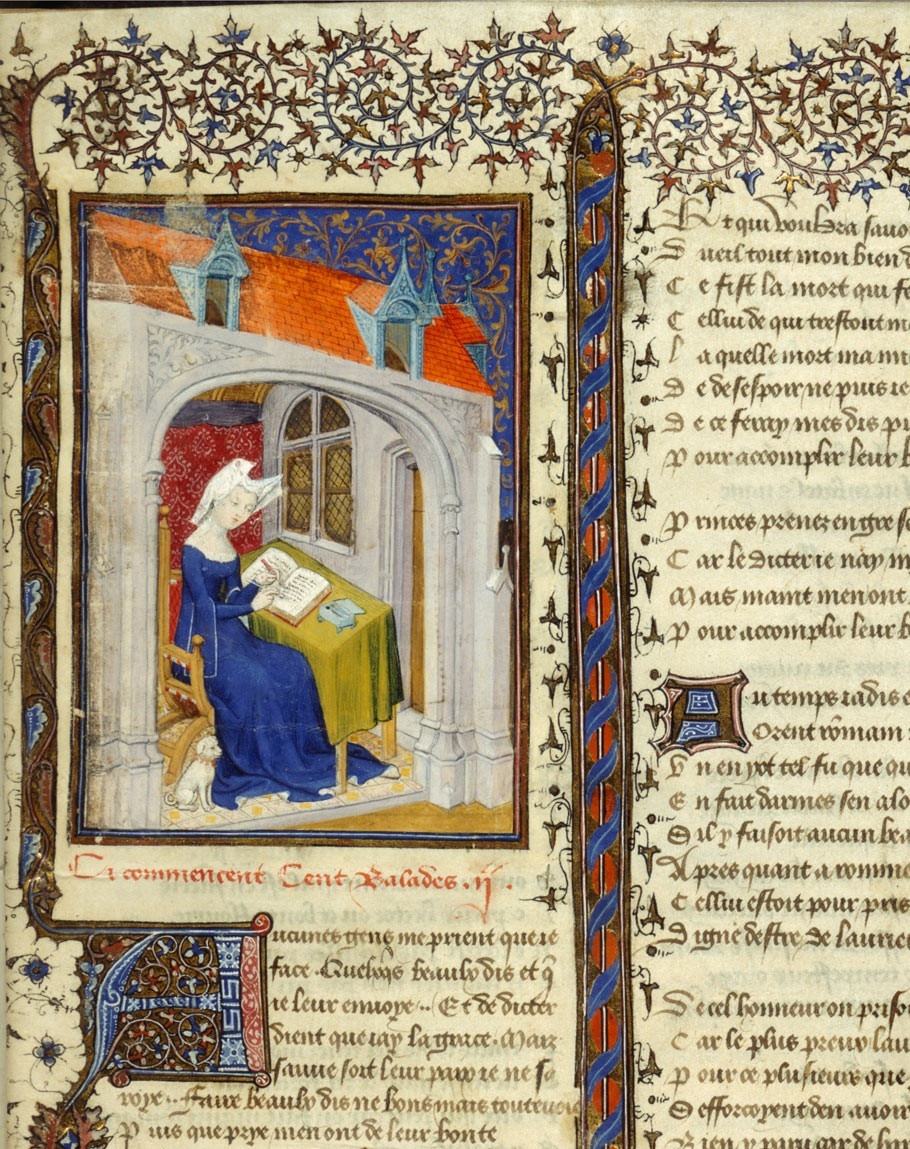 Ci commencent Cent Balades . ij .
Aucunes gens me prient que ie
face . Quelqs beaulx dis et q̄
ie leur envoye .. Et de dicter
dient que iay la grace . Mais
sauue soit leur paix ie ne sa
roye .. Faire beaulx dis ne bons mais toutevoie
Puis que prye men ont de leur bonte
Et qui vouldra savo
Dueil tout mon bien d
Ce fist la mort qui fe
Cellui de qui trestout m
Laquelle mort ma mi
De desespoir ne puis ie
De ce feray mes dis pu
Pour accomplir leur b
Princes prenez en gre se
Car le dictie ie nay m
Mais maint men ont
Pour accomplir leur b
Au temps iadis e
Orent romain
Vn en yot tel fu que qu
En fait darmes sen alo
Sil y faisoit aucun bea
Apres quant a romme
Cellui estoit pour pris
Digne destre de laurier
De cel honneur on priso
Car le plus preux lau
Pour ce plusieurs que
Sefforcoyent den auoir